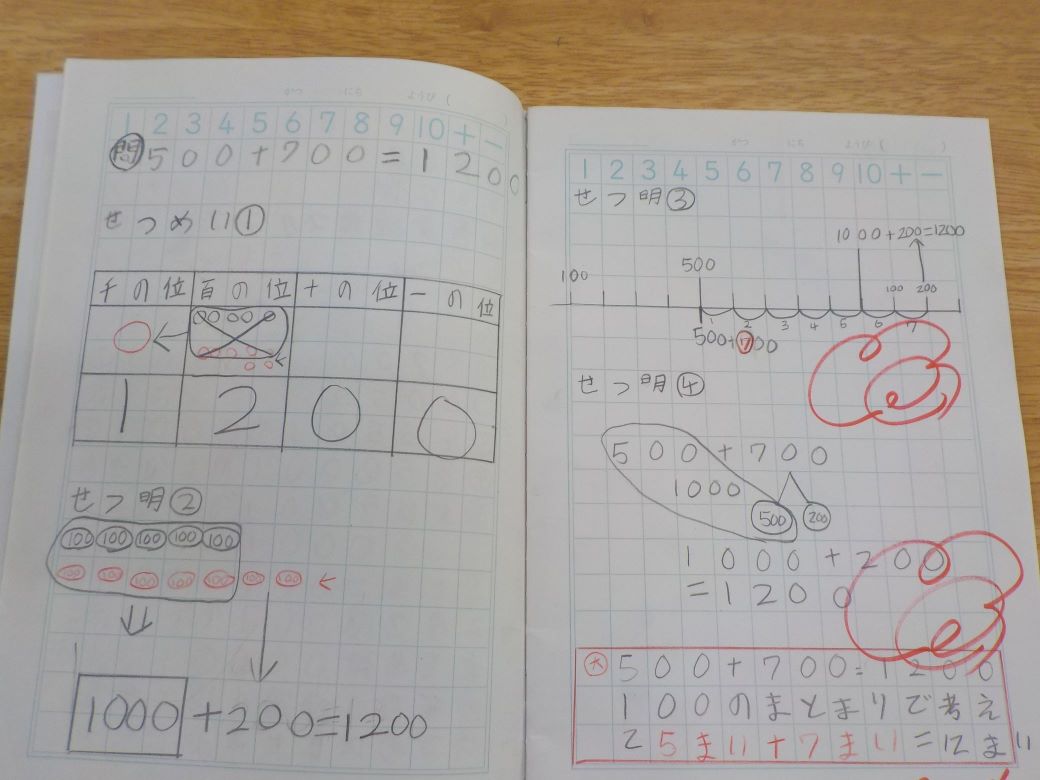 1 2 3 4 5 6 7 8 9 10 + −
問 500+700=1200
せつめい①
千の位 百の位 十の位 一の位
1 2 0 0
せつ明②
100 100 100 100 100
100 100 100 100 100 100 100
1000+200=1200
1 2 3 4 5 6 7 8 9 10 + −
せつ明③
1000+200=1200
100 500 100 200
1 2 3 4 5 6 7
500+700
せつ明④
500+700
1000 500 200
1000+200
=1200
大 500+700=1200
100のまとまりで考え
て 5まい+7まい=12まい